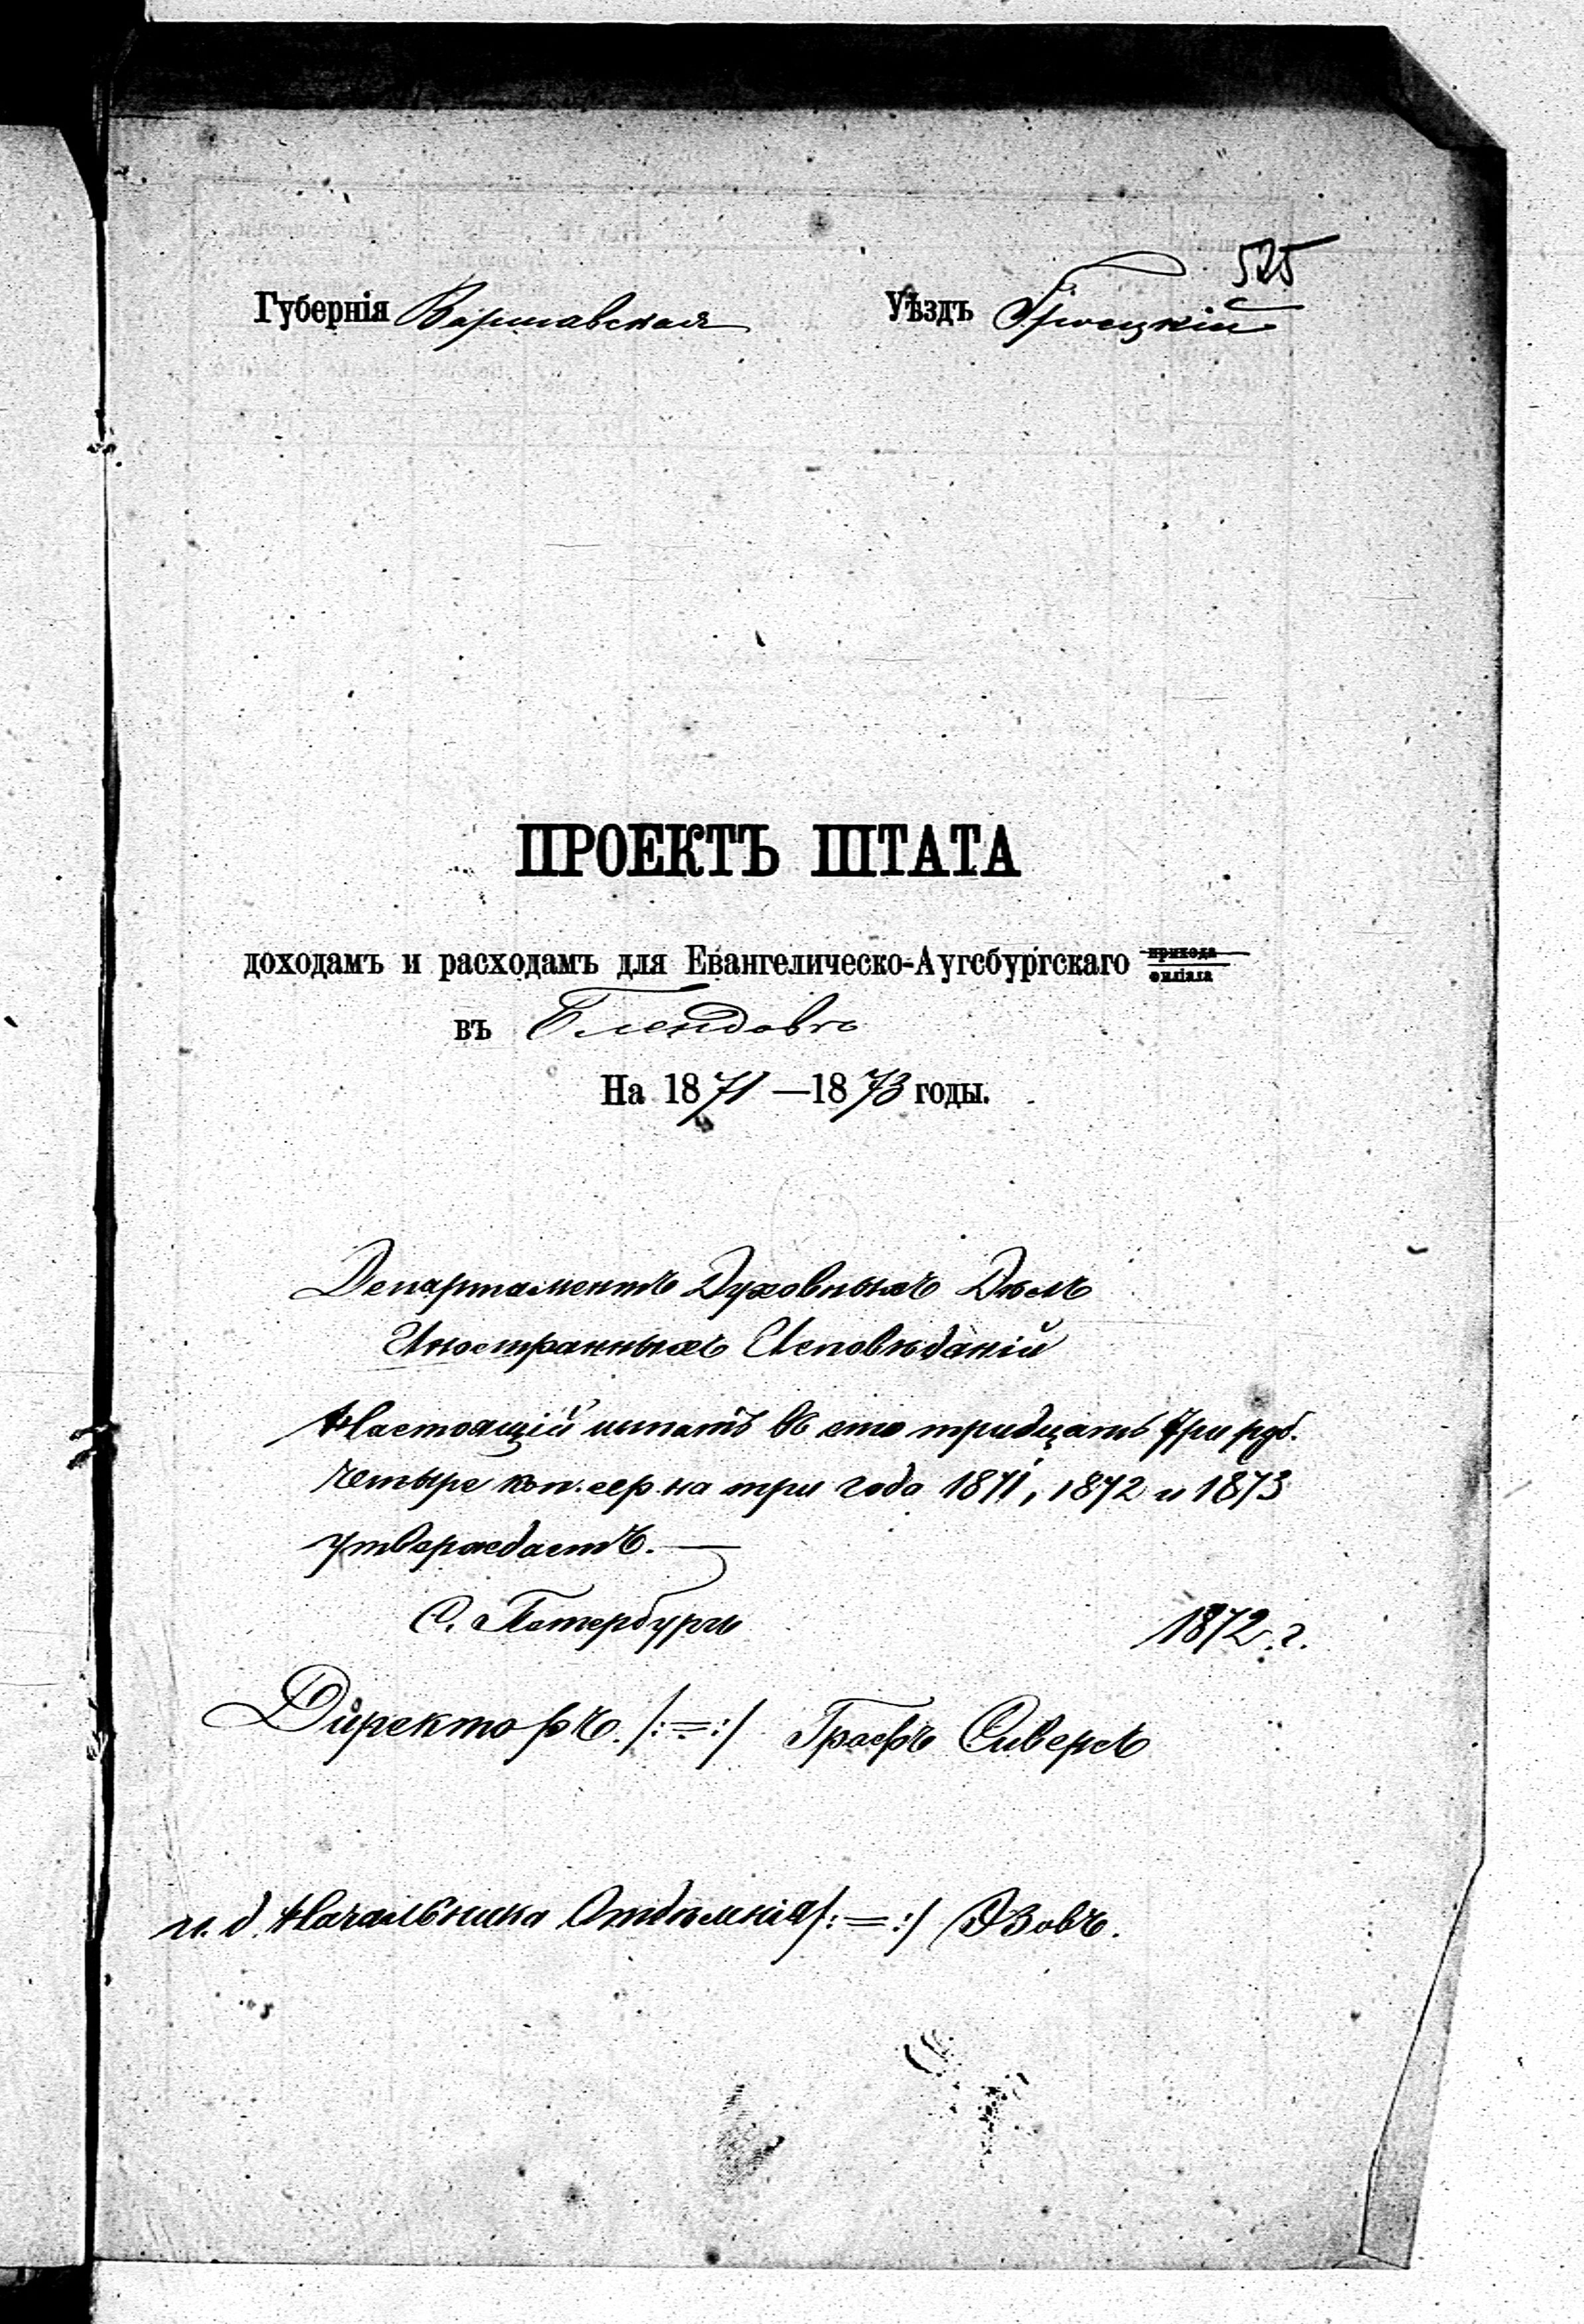 525
Губернія Варшавская Уѣздъ Гроецкій
ПРОЕКТЪ ШТАТА
доходамъ и расходамъ для Евангелическо-Аугсбургскаго прихода
филіала
въ Блендовѣ
На 1871—1873 годы.
Департаментъ Духовныхъ Дѣлъ
Иностранныхъ Исповѣданій
Настоящій штатъ въ сто тридцать три руб.
четыре коп. сер. на три года 1871, 1872 и 1873
утверждаетъ.—
С. Петербургъ 1872 г.
Директоръ /:=:/ Графъ Сиверсъ
и. д. Начальника Отдѣленія /:=:/